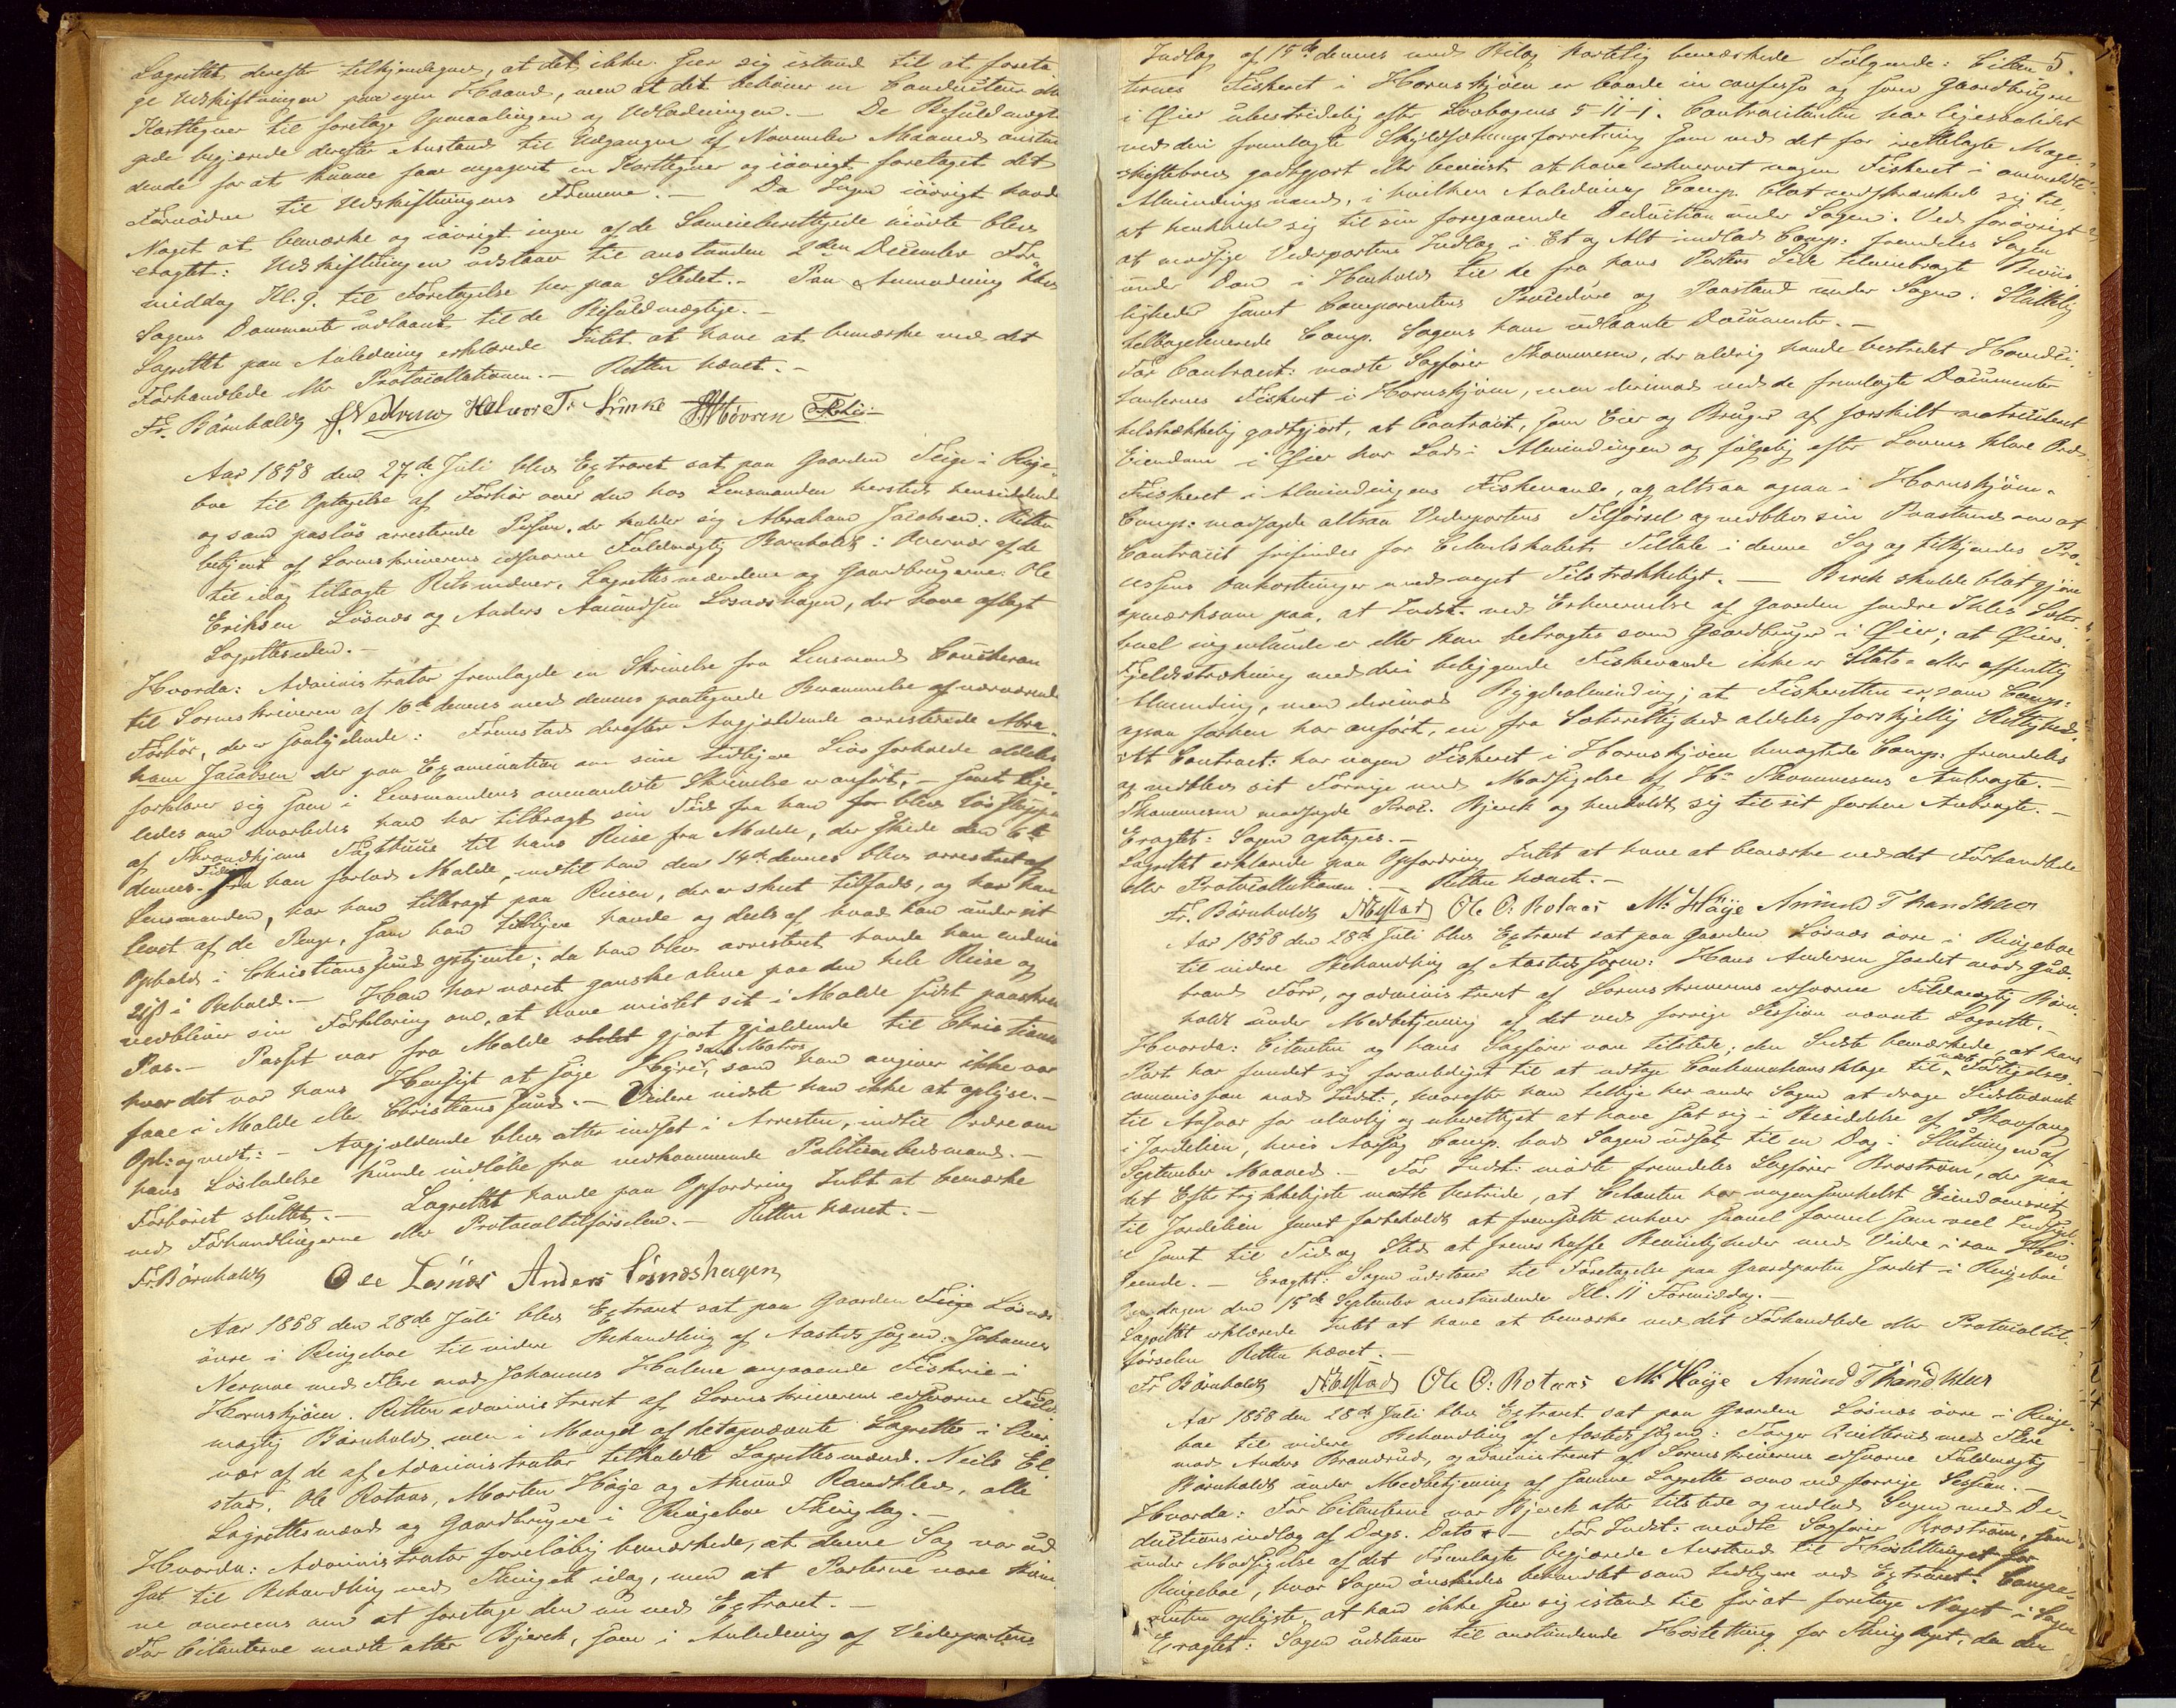 Lagrettet derefter tilkjendegav, at det ikke seer sig istand til at foreta
ge Udskiftningen paa egen Haand, men at det behøver en Conducteur el
Karttegner til foretage Opmaalingen og Udlodningen. – De Befuldmægti
gede begjærede derefter Anstand til Udgangen af November Maaned anstun
dende for at kunne faae engageret en Karttegner og iøvrigt foretaget det
Fornødne til Udskiftningens Fremme. – Da Ingen iøvrigt havde
Noget at bemærke og iøvrigt ingen af de Sameieberettigede mødte blev
eragtet: Udskiftningen udstaaer til anstundende 2den December For
middag Kl. 9. til Foretagelse her paa Stedet. – Paa Anmodning blev
Sagens Documenter udlaant til de Befuldmægtige. –
Lagrettet paa Anledning erklærede Intet at have at bemærke ved det
Forhandlede eller Protocollationen. – Retten hævet. –
Fr. Bârnholdt Halvor T.
Aar 1858 den 27de Juli blev Extraret sat paa Gaarden Teige i Ringe-
boe til Optagelse af Forhør over den hos Lensmanden hersteds hensiddende
og som pasløs arresterede Person, der kalder sig Abraham Jacobsen: Retten
betjent af Sorenskriverens edsvorne Fuldmægtig Bârnholdt i Overvær af de
til idag tilsagte Retsvidner, Lagrettesmændene og Gaardbrugerne: Ole
Eriksen Løsnæs og Anders Amundsen Løsnæshagen, der have aflagt
Lagretteseden. –
Hvorda: Administrator fremlagde en Skrivelse fra Lensmand Coucheron
til Sorenskriveren af 16de dennes med dennes paategnede Berammelse af nærværende
Forhør, der er saalydende: Fremstod derefter Angjeldende arresterede Abra-
ham Jacobsen der paa Examination om sine tidligere Livsforholde aldeles
forklarer sig som i Lensmandens ommeldte Skrivelse er anført, – samt lige-
ledes om hvorledes han har tilbragt sin Tid fra han for blev løs sluppe
af Throndhjems Tugthuus til hans Reise fra Molde, der skede den 6te
dennes. Tiden fra han forlod Molde, indtil han den 14de dennes blev arresteret af
Lensmanden, har han tilbragt paa Reisen, der er skeet tilfods, og har han
levet af de Penge, som han tidligere havde og deels af hvad han under sit
Ophold i Christianssund optjente; da han blev arresteret havde han endnu
i Behold. – Han har været ganske alene paa den hele Reise og
vedbliver sin Forklaring om, at have mistet sit i Molde sidst paaskrev
Pas. – Passet var fra Molde gjort gjældende til Christians
hvor det var hans Hensigt at søge Hyre som Matros, som han angiver ikke var
faae i Molde eller Christianssund. – Videre vidste han ikke at oplyse. –
Opl: og vedt: – Angjældende blev atter indsat i Arresten, indtil Ordre om
hans Løsladelse kunde indløbe fra vedkommende Politieembedsmand. –
Forhøret sluttet. – Lagrettet havde paa Opfordring Intet at bemærke
ved Forhandlingerne eller Protocoltilførselen. – Retten hævet. –
Fr. Bârnholdt Ole Løsnæs Anders Løsnæshagen
Aar 1858 den 28de Juli blev Extraret sat paa Gaarden Løsnæs
øvre i Ringeboe til videre Behandling af Aastedssagen: Johannes
Nermoe med Flere mod Johannes angaaende Fiskerie i
Hornskjøen. Retten administreret af Sorenskriverens edsvorne Fuld-
mægtig Bârnholdt, men i Mangel af detopnævnte Lagrette i Over-
vær af de af Administrator tilkaldte Lagrettesmænd. Neils El-
stad, Ole Rotaas, Morten Høge og Amund Randklev, alle
Lagrettesmænd og Gaardbrugere i Ringeboe Thinglag. –
Hvorda: Administrator foreløbig bemærkede, at denne Sag var ud
sat til Behandling ved Thinget idag, men at Parterne vare kom
ne overeens om at foretage den nu ved Extraret. –
For Citanterne mødte atter Bjerck, som i Anledning af Vederpartens
5.
Indlæg af 15de dennes med Bilag kortelig bemærkede Følgende: Citan-
ternes Fiskeret i Hornskjøen er baade in confesso og som Gaardbrugere
i Øier ubestridelig efter Lovbogens 5-11-1. Contracitanten har ligesaalidet
ved den fremlagte Skyldsætningsforretning som ved det for rettelagte Mage-
skiftebrev godtgjort eller beviist at have erhvervet nogen Fiskeret i ommeldte
Almindings vand, i hvilken Anledning Comp. blot indskrænkede sig til
at henholde sig til sin foregaaende Deduction under Sagen. Ved forøvrigt
at modsige Vederpartens Indlæg i Et og Alt indlod Comp: fremdeles Sagen
under Dom i Henhold til de fra hans Parters Side tilveiebragte Beviis
ligheder samt Comparentens Procedure og Paastand under Sagen. Sluttelig
tilbageleverede Comp. Sagens ham udlaante Documenter. –
For Contracit: mødte Sagfører Thommesen, der aldrig havde bestridt Hoved
tanternes Fiskeret i Hornskjøen, men derimod ved de fremlagte Documenter
tilstrækkelig godtgjort, at Contracit, som Eier og Bruger af særskilt matriculeret
Eiendom i Øier har Lod i Almindingen og følgelig efter Lovens klare Ord
Fiskeret i Almindingens Fiskevande, og altsaa ogsaa i Hornskjøen.
Comp: modsagde altsaa Vederpartens Tilførsel og vedblev sin Paastand om at
Contracit frifindes for Citantskabets Tiltale i denne Sag og tilkjendes Pro-
cessens Omkostninger med noget Tilstrækkeligt. – Bjerck skulde blot gjøre
opmærksom paa, at Indst. ved Erhvervelse af Gaarden søndre Sæter-
boel ingenlunde er eller kan betragtes som Gaardbruger i Øier; at Øiers
Fjeldstrækning med deri beliggende Fiskevande ikke er Stats- eller offentlig
Alminding, men derimod Bygdealminding; at Fiskeretten er, som Comp:
ogsaa forhen har anført, en fra Sæterrettighed aldeles forskjellig Rettighed.
At Contract: har nogen Fiskeret i Hornskjøen benægtede Comp: fremdeles
og vedblev sit Forrige med Modsigelse af Hr Thommesens Anbragte. –
Thommesen modsagde Proc. Bjerck og henholdt sig til sit forhen Anbragte. –
Eragtet: Sagen optages. –
Lagrettet erklærede paa Opfordring Intet at have at bemærke ved det Forhandlede
eller Protocollationen. – Retten hævet. –
Fr. Bârnholdt NElstad Ole O: Rotaas M: Høÿe Amund Randklev
Aar 1858 den 28de Juli blev Extraret sat paa Gaarden Løsnæs øvre i Ringeboe
til videre Behandling af Aastedssagen: Hans Andersen Jordet mod Gud-
brand, og administreret af Sorenskriverens edsvorne Fuldmægtig Bârn-
holdt under Medbetjening af det ved forrige Session nævnte Lagrette. –
Hvorda: Citanten og hans Sagfører vare tilstede; den Sidste bemærkede, at hans
Part har fundet sig foranlediget til at udtage Continuationsklage til Forligelses-
commissionen mod Indst:, hvorefter han tillige her under Sagen at drage Sidstnævnte
til Ansvar for ulovlig og uberettiget at have sat sig i Besiddelse af
i Jordelien, hvis Aarsag Comp. bad Sagen udsat til en Dag i Slutningen af
September Maaned. – For Indst: mødte fremdeles Sagfører Brostrøm, der paa
det Eftertrykkeligste maatte bestride, at Citanten har nogensomhelst Eiendomsret
til Jordelien samt forbeholdt at fremsætte enhver saavel formel som reel Indsigel-
se samt til Tid og Sted at fremskaffe Beviisligheder med Videre i saa Hen-
seende. – Eragtet: Sagen udstaaer til Foretagelse paa Gaardparten Jordet i Ringeboe
Onsdagen den 15de September anstundende Kl. 11 Formiddag. –
Lagrettet erklærede Intet at have at bemærke ved det Forhandlede eller Protocoltil-
førselen Retten hævet. –
Fr Bârnholdt NElstad Ole O: Rotaas M: Høÿe Amund Randklev
Aar 1858 den 28de Juli blev Extraret sat paa Gaarden Løsnæs øvre i Ringe-
boe til videre Behandling af Aastedssagen: med Flere
mod Anders Brandrud, og administreret af Sorenskriverens edsvorne Fuldmægtig
Bârnholdt under Medbetjening af samme Lagrette som ved forrige Session. –
Hvorda: For Citanterne var Bjerck atter tilstede og indlod Sagen med De-
ductionsindlæg af Dags. Dato – For Indst: mødte Sagfører Brostrøm, som
under Modsigelse af det Fremlagte begjærede Anstand til Høstetthinget for
Ringeboe, hvor Sagen ønskedes behandlet som tidligere ved Extraret. Compa-
renten oplyste, at han ikke seer sig istand til før at foretage Noget i Sagen
Eragtet: Sagen udstaaer til anstundende Høstetthing for Thinglaget, da den